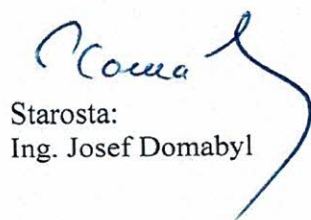 Starosta:
Ing. Josef Domabyl